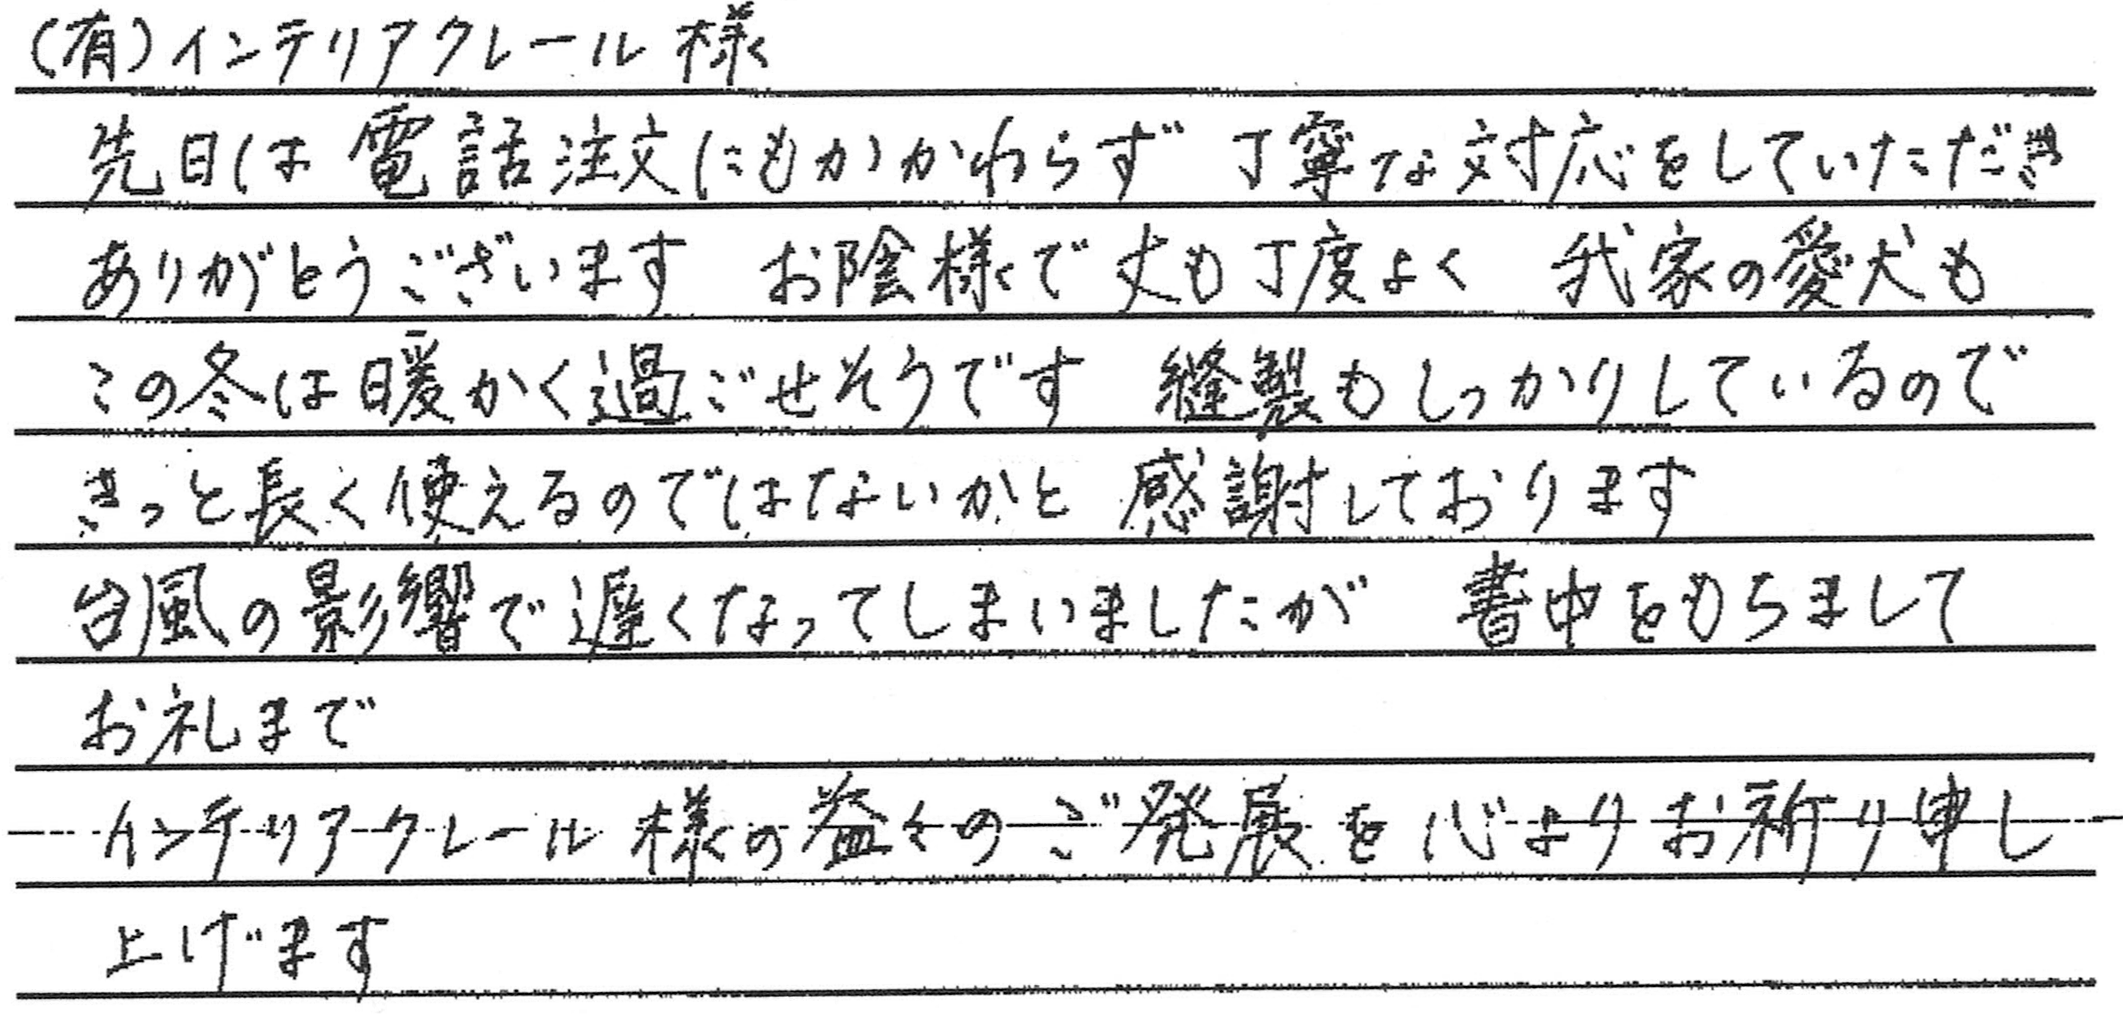 (有)インテリアクレール 様
先日は 電話注文にもかかわらず 丁寧な対応をしていただき
ありがとうございます お陰様で丈も丁度よく 我家の愛犬も
この冬は暖かく過ごせそうです 縫製もしっかりしているので
きっと長く使えるのではないかと 感謝しております
台風の影響で遅くなってしまいましたが 書中をもちまして
お礼まで
インテリアクレール 様の益々のご発展を心よりお祈り申し
上げます